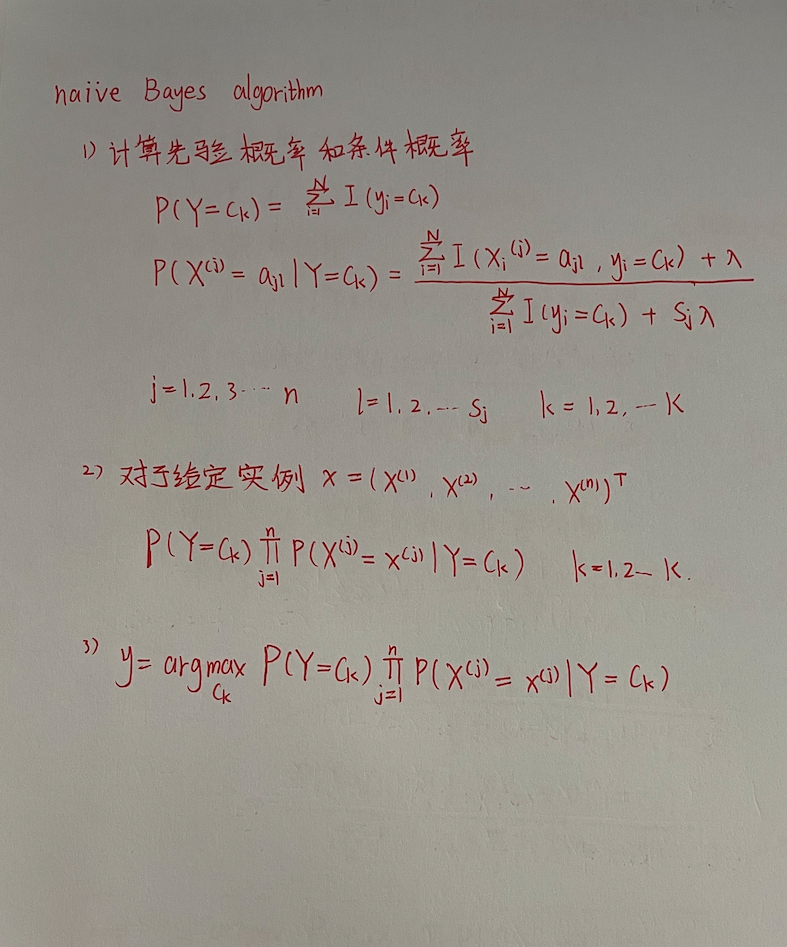 naive Bayes algorithm
1) 计算先验概率和条件概率
P(Y=Ck) = ∑_{i=1}^{N} I(yi=Ck)
P(X^(j) = a_jl | Y=Ck) = (∑_{i=1}^{N} I(Xi^(j) = a_jl , yi=Ck) + λ) / (∑_{i=1}^{N} I(yi=Ck) + Sj λ)
j=1,2,3⋯ n l=1,2,⋯ Sj k=1,2,⋯ K
2) 对于给定实例 x=(X^(1), X^(2), ⋯, X^(n))^T
P(Y=Ck) ∏_{j=1}^{n} P(X^(j) = x^(j) | Y=Ck) k=1,2⋯ K.
3) y= argmax_{Ck} P(Y=Ck) ∏_{j=1}^{n} P(X^(j) = x^(j) | Y=Ck)